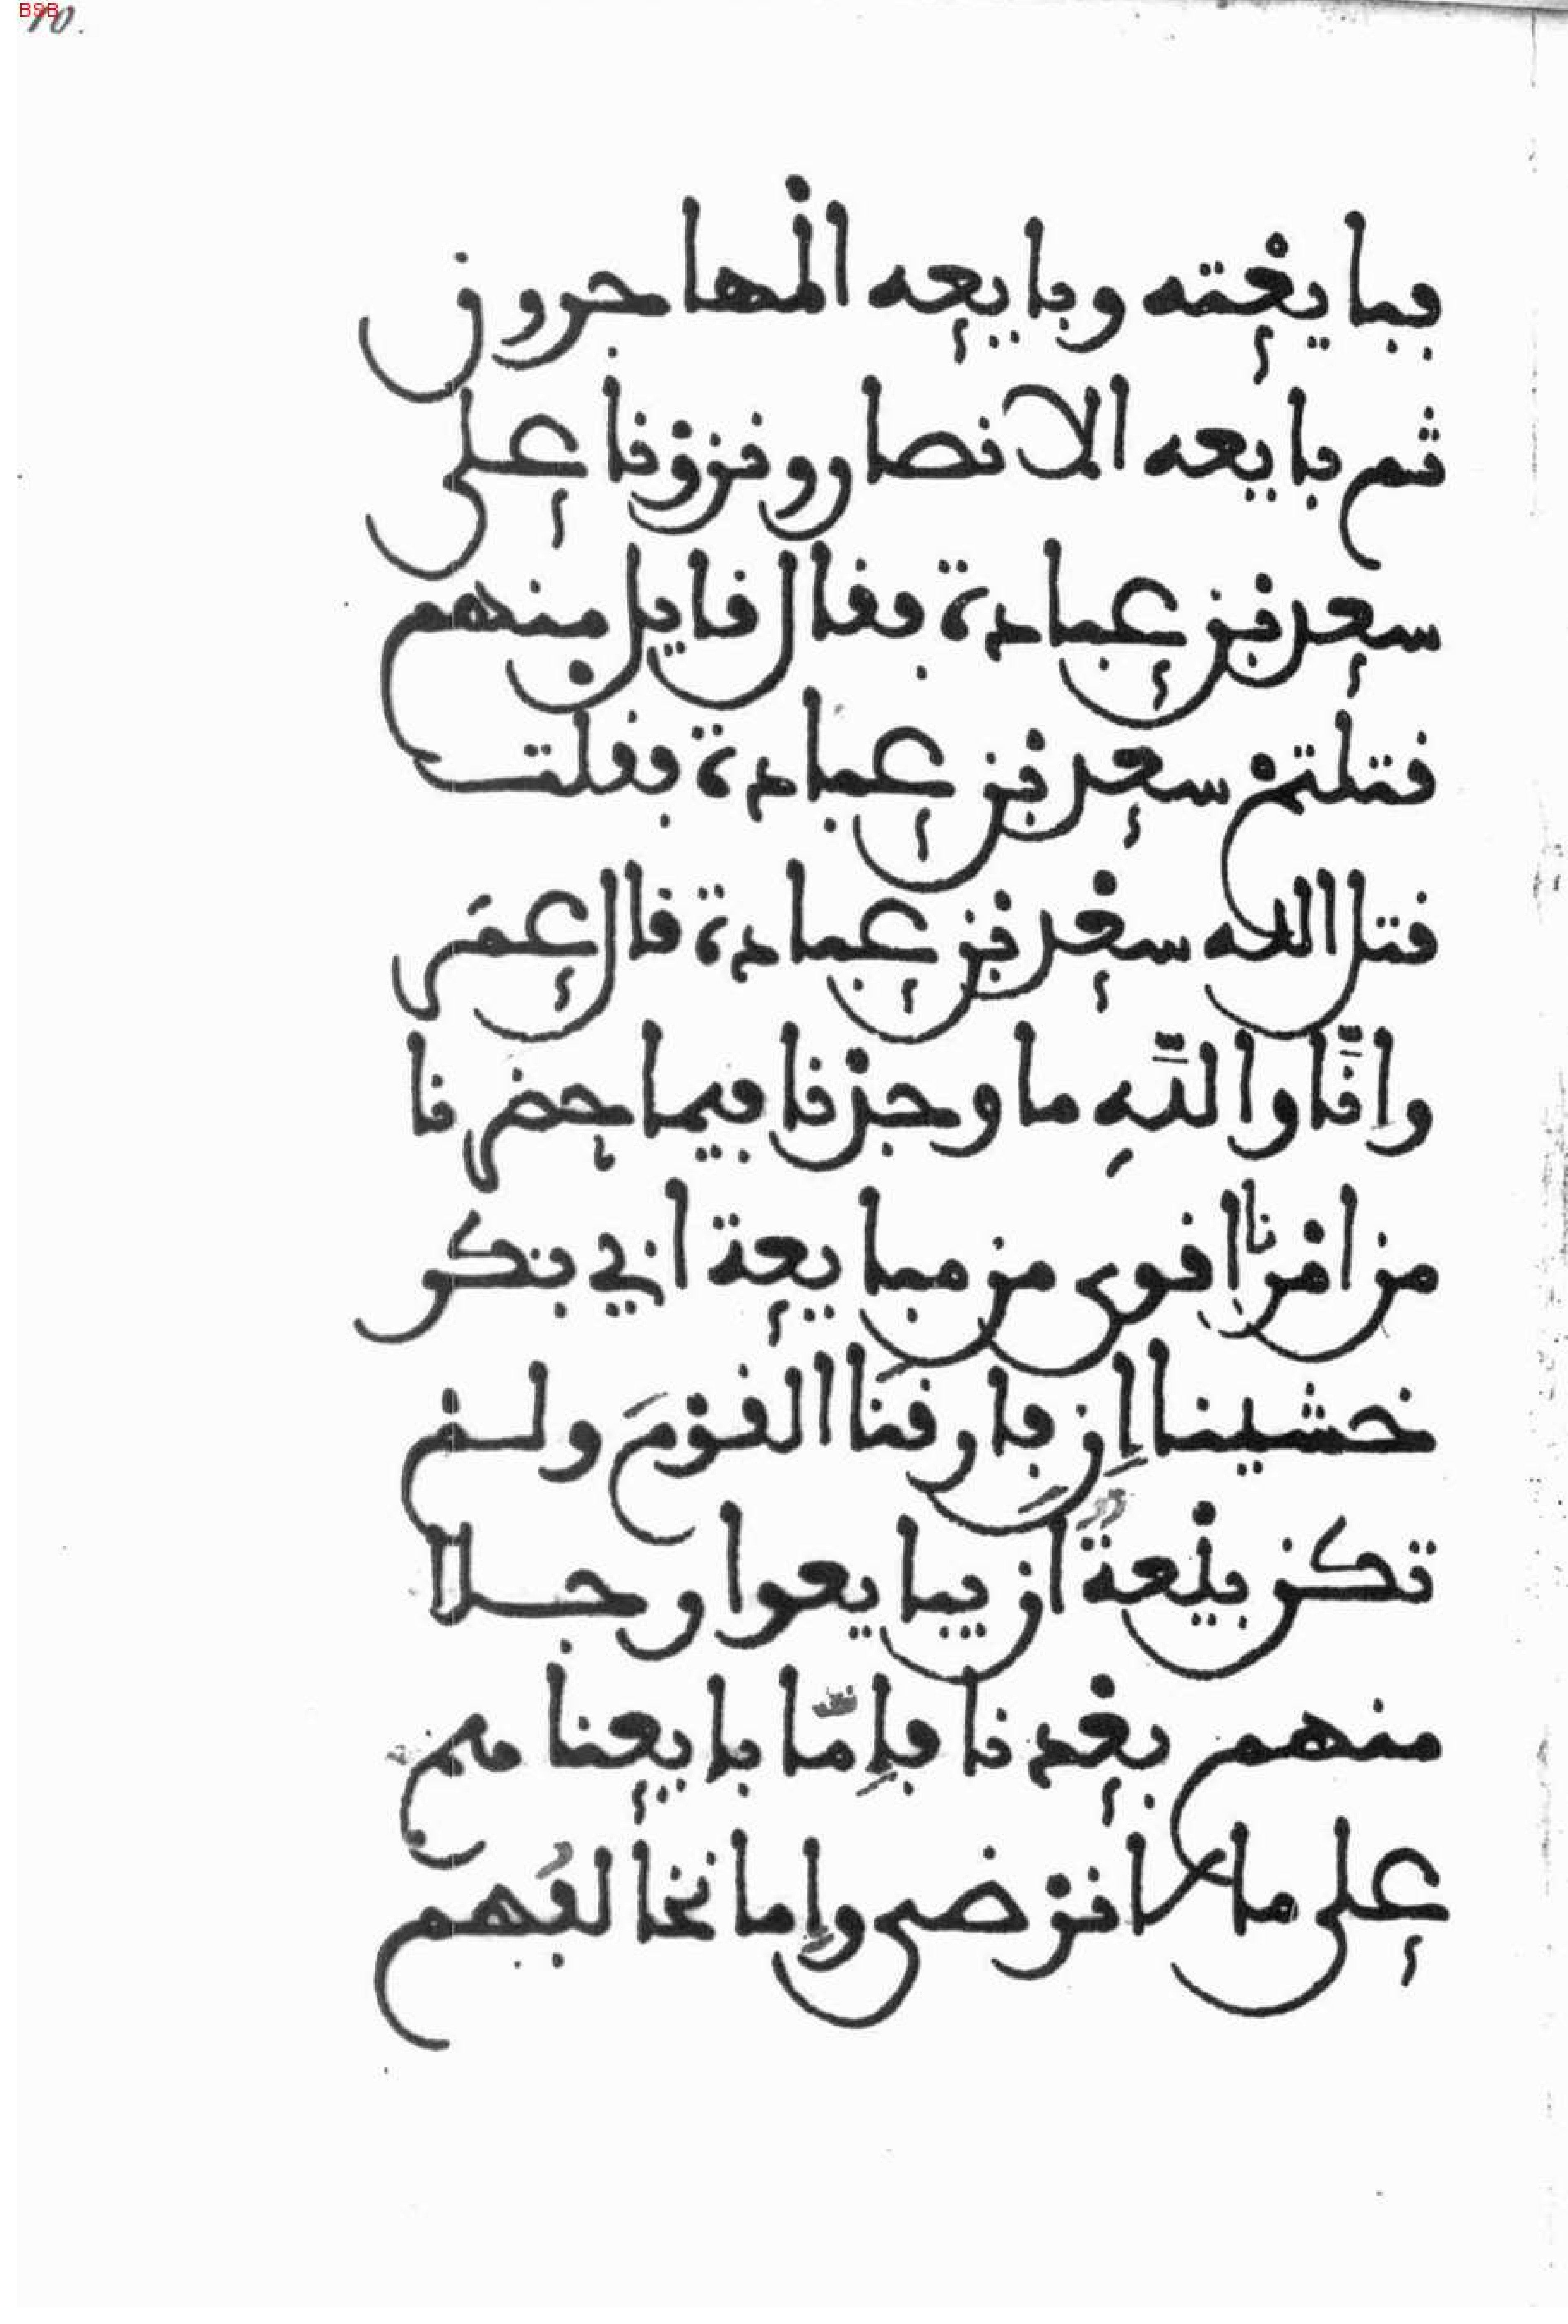 10.
فبايعْته وبايعه الْمهاجرون
ثم بايعه الانصار ونزوْنا على
سعد بْن عبادة فقال قايل منهم
قتلتمْ سعد بْن عبادة فقلت
قتل الله سعْد بْن عبادة قال عمَر
وانَّا والله ما وجدْنا فيما حضرنا
من امْرنا اقوى من مبايعة ابي بكر
خشينا اِن فارقنَا القوْمَ ولم
تكن بيْعةٌ ان يبايعوا رجلا
منهم بعْدنا فاِمّا بايعناهم
على ما لا نرْضى واِما نخالفُهم